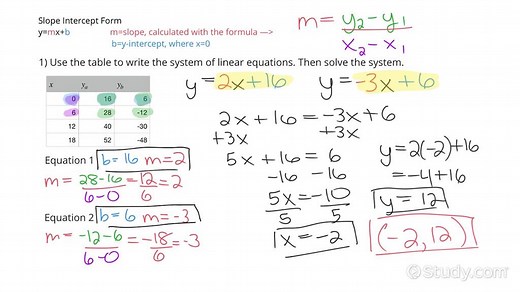 Slope Intercept Form
y=mx+b
m=slope, calculated with the formula —>
b=y-intercept, where x=0
m = y₂ - y₁
x₂ - x₁
1) Use the table to write the system of linear equations. Then solve the system.
x yₐ y_b
0 16 6
6 28 -12
12 40 -30
18 52 -48
y = 2x+16 y = -3x+6
2x+16 = -3x+6
+3x +3x
5x+16 = 6
-16 -16
5x = -10
5 5
x = -2
y = 2(-2)+16
= -4+16
y = 12
(-2, 12)
Equation 1 b=16 m=2
m = 28-16 = 12 = 2
6-0 6
Equation 2 b=6 m=-3
m = -12-6 = -18 = -3
6-0 6
Study.com